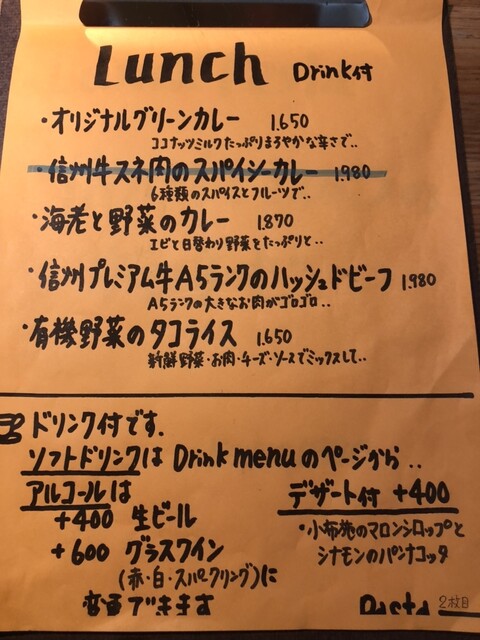 Lunch Drink付
・オリジナルグリーンカレー 1.650
ココナッツミルクたっぷりまろやかな辛さで..
・信州牛スネ肉のスパイシーカレー 1.980
6種類のスパイスとフルーツで..
・海老と野菜のカレー 1.870
エビと日替わり野菜をたっぷりと..
・信州プレミアム牛A5ランクのハッシュドビーフ 1.980
A5ランクの大きなお肉がゴロゴロ..
・有機野菜のタコライス 1.650
新鮮野菜・お肉・チーズ・ソースでミックスして..
ドリンク付です.
ソフトドリンクはDrink menuのページから..
アルコールは
+400 生ビール
+600 グラスワイン
(赤・白・スパークリング)に
変更できます
デザート付 +400
・小布施のマロンシロップと
シナモンのパンナコッタ
Pasta 2枚目